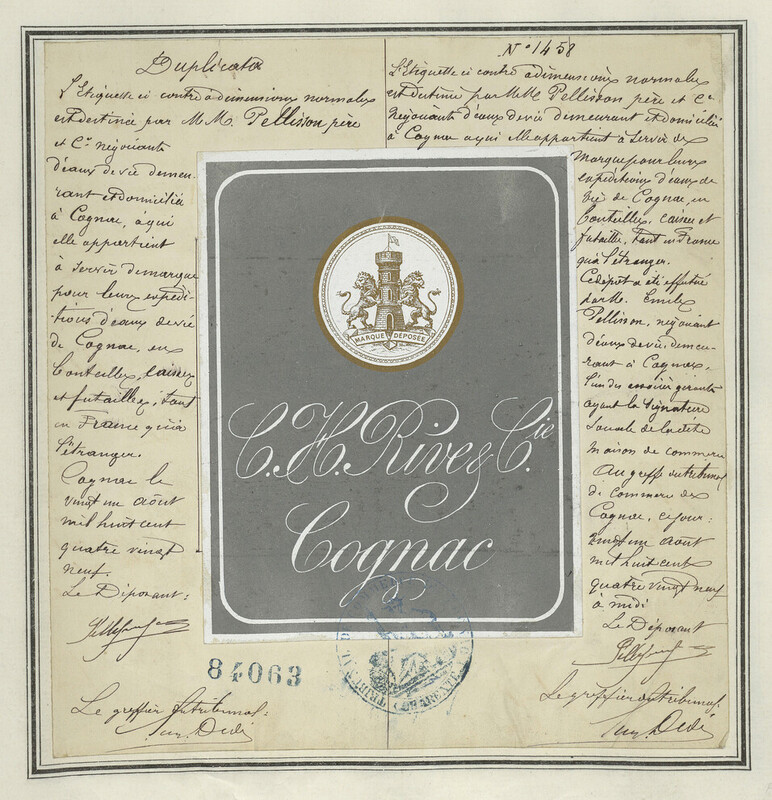 Duplicata
L'Etiquette ci contre a dimensions normales
est destinée par M M. Pellisson père
et Cie négociants
d'eaux de vie demeu-
rant et domiciliés
à Cognac, à qui
elle appartient
à servir de marque
pour leurs expédi-
tions d'eaux de vie
de Cognac, en
bouteilles, caisses
et futailles, tant
en France qu'à
l'étranger.
Cognac le
vingt un août
mil huit cent
quatre vingt
neuf.
Le Déposant:
84063
Le greffier du tribunal:
N° 1458
L'Etiquette ci contre a dimensions normales
est destinée par M M. Pellisson père et Cie
Négociants d'eaux de vie demeurant et domiciliés
à Cognac à qui elle appartient à servir de
marque pour leurs
expéditions d'eaux de
vie de Cognac, en
bouteilles, caisses et
futailles, tant en France
qu'à l'étranger.
Ce dépôt a été effectué
par M. Emile
Pellisson, négociant
d'eaux de vie, demeu-
rant à Cognac,
l'un des associés gérants
ayant la signature
sociale de la dite
maison de commerce
Au greffe du tribunal
de commerce de
Cognac, ce jour:
vingt un août
mil huit cent
quatre vingt neuf
à midi
Le Déposant
Le greffier du tribunal.
MARQUE DÉPOSÉE
C. H. Rives & Cie
Cognac